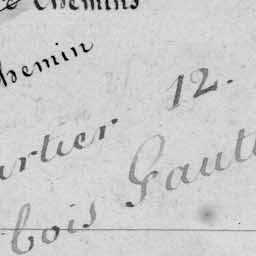 Chemins
Chemin
artier 12.
bois Gaut